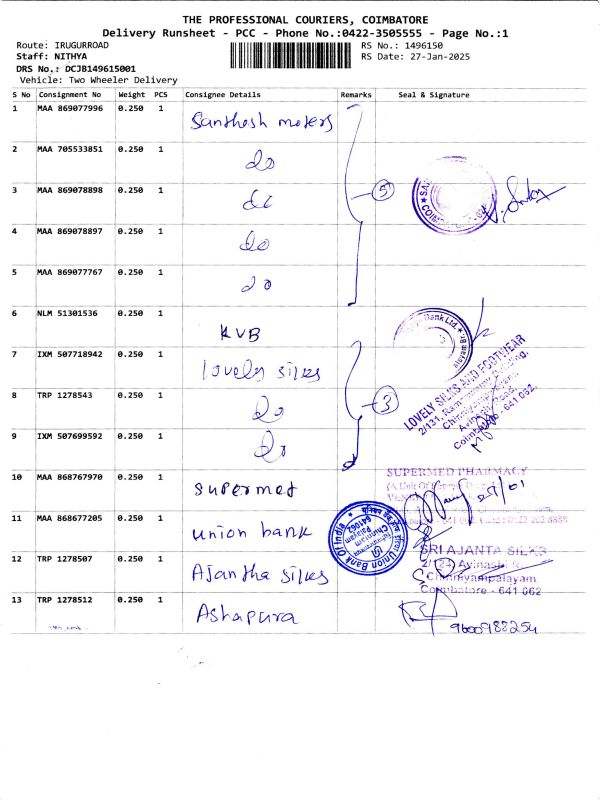 THE PROFESSIONAL COURIERS, COIMBATORE
Delivery Runsheet - PCC - Phone No.:0422-3505555 - Page No.:1
Route: IRUGURROAD RS No.: 1496150
Staff: NITHYA RS Date: 27-Jan-2025
DRS No.: DCJB149615001
Vehicle: Two Wheeler Delivery
S No Consignment No Weight PCS Consignee Details Remarks Seal & Signature
1 MAA 869077996 0.250 1 Santhosh moters
2 MAA 705533851 0.250 1 do
3 MAA 869078898 0.250 1 do 5
4 MAA 869078897 0.250 1 do
5 MAA 869077767 0.250 1 do
6 NLM 51301536 0.250 1 KVB Bank Ltd.
7 IXM 507718942 0.250 1 lovely silks
LOVELY SILKS AND FOOTWEAR
8 TRP 1278543 0.250 1 do 3
9 IXM 507699592 0.250 1 do
641 062.
10 MAA 868767970 0.250 1 supermed
SUPERMED PHARMACY
11 MAA 868677205 0.250 1 union bank
Union Bank Of India
641062
12 TRP 1278507 0.250 1 Ajantha silks
SRI AJANTA SILKS
Chinniyampalayam,
Coimbatore - 641 062
13 TRP 1278512 0.250 1 Ashapura
9600988254